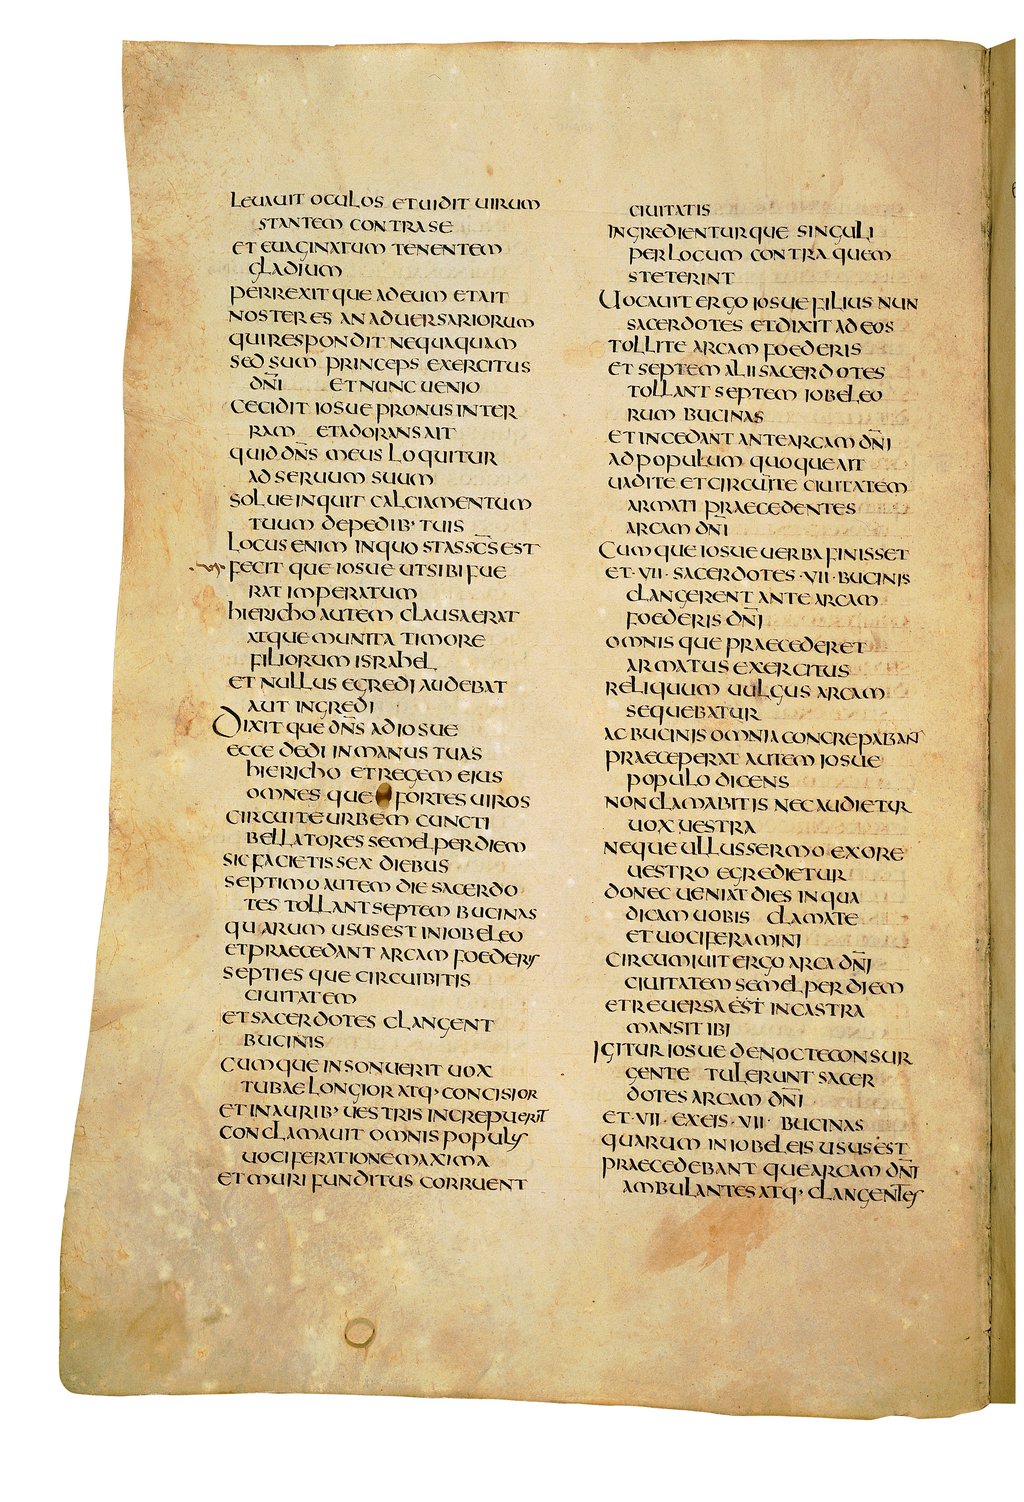 LEUAUIT OCULOS ET UIDIT UIRUM
STANTEM CONTRA SE
ET EUAGINATUM TENENTEM
GLADIUM
PERREXITQUE AD EUM ET AIT
NOSTER ES AN ADUERSARIORUM
QUI RESPONDIT NEQUAQUAM
SED SUM PRINCEPS EXERCITUS
DN̄I ET NUNC UENIO
CECIDIT IOSUE PRONUS IN TER
RAM ET ADORANS AIT
QUID DN̄S MEUS LOQUITUR
AD SERUUM SUUM
SOLUE INQUIT CALCIAMENTUM
TUUM DE PEDIB' TUIS
LOCUS ENIM IN QUO STAS SC̄S EST
FECITQUE IOSUE UT SIBI FUE
RAT IMPERATUM
HIERICHO AUTEM CLAUSA ERAT
ATQUE MUNITA TIMORE
FILIORUM ISRAHEL
ET NULLUS EGREDI AUDEBAT
AUT INGREDI
DIXITQUE DN̄S AD IOSUE
ECCE DEDI IN MANUS TUAS
HIERICHO ET REGEM EIUS
OMNESQUE FORTES UIROS
CIRCUITE URBEM CUNCTI
BELLATORES SEMEL PER DIEM
SIC FACIETIS SEX DIEBUS
SEPTIMO AUTEM DIE SACERDO
TES TOLLANT SEPTEM BUCINAS
QUARUM USUS EST IN IOBELEO
ET PRAECEDANT ARCAM FOEDERIS
SEPTIESQUE CIRCUIBITIS
CIUITATEM
ET SACERDOTES CLANGENT
BUCINIS
CUMQUE INSONUERIT UOX
TUBAE LONGIOR ATQ' CONCISIOR
ET IN AURIB' UESTRIS INCREPUERIT
CONCLAMAUIT OMNIS POPULUS
UOCIFERATIONE MAXIMA
ET MURI FUNDITUS CORRUENT
CIUITATIS
INGREDIENTURQUE SINGULI
PER LOCUM CONTRA QUEM
STETERINT
UOCAUIT ERGO IOSUE FILIUS NUN
SACERDOTES ET DIXIT AD EOS
TOLLITE ARCAM FOEDERIS
ET SEPTEM ALII SACERDOTES
TOLLANT SEPTEM IOBELEO
RUM BUCINAS
ET INCEDANT ANTE ARCAM DN̄I
AD POPULUM QUOQUE AIT
UADITE ET CIRCUITE CIUITATEM
ARMATI PRAECEDENTES
ARCAM DN̄I
CUMQUE IOSUE UERBA FINISSET
ET · VII · SACERDOTES · VII · BUCINIS
CLANGERENT ANTE ARCAM
FOEDERIS DN̄I
OMNISQUE PRAECEDERET
ARMATUS EXERCITUS
RELIQUUM UULGUS ARCAM
SEQUEBATUR
AC BUCINIS OMNIA CONCREPABANT
PRAECEPERAT AUTEM IOSUE
POPULO DICENS
NON CLAMABITIS NEC AUDIETUR
UOX UESTRA
NEQUE ULLUS SERMO EX ORE
UESTRO EGREDIETUR
DONEC UENIAT DIES IN QUA
DICAM UOBIS CLAMATE
ET UOCIFERAMINI
CIRCUMIUIT ERGO ARCA DN̄I
CIUITATEM SEMEL PER DIEM
ET REUERSA EST IN CASTRA
MANSIT IBI
IGITUR IOSUE DE NOCTE CONSUR
GENTE TULERUNT SACER
DOTES ARCAM DN̄I
ET · VII · EX EIS · VII · BUCINAS
QUARUM IN IOBELEIS USUS EST
PRAECEDEBANTQUE ARCAM DN̄I
AMBULANTES ATQ' CLANGENTES